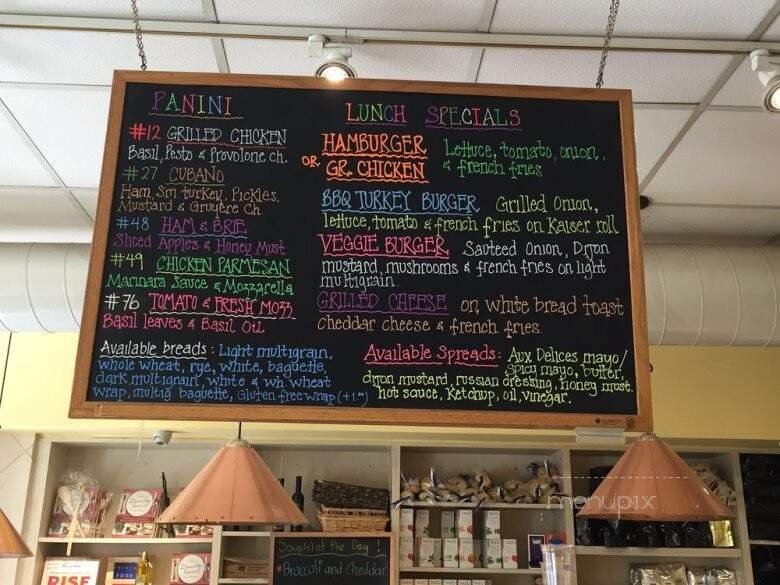 PANINI
#12 GRILLED CHICKEN
Basil, Pesto & Provolone ch.
#27 CUBANO
Ham, Sm turkey, Pickles,
Mustard & Gruyere Ch
#48 HAM & BRIE
Sliced Apples & Honey Must
#49 CHICKEN PARMESAN
Marinara Sauce & Mozzarella
#76 TOMATO & FRESH MOZZ.
Basil leaves & Basil Oil
Available breads: Light multigrain,
whole wheat, rye, white, baguette,
dark multigrain, white & wh. wheat
wrap, multig baguette, Gluten free wrap (+1.00)
LUNCH SPECIALS
HAMBURGER
OR GR. CHICKEN
Lettuce, tomato, onion,
& french fries
BBQ TURKEY BURGER Grilled Onion,
lettuce, tomato & french fries on Kaiser roll
VEGGIE BURGER Sauteed Onion, Dijon
mustard, mushrooms & french fries on light
multigrain
GRILLED CHEESE on white bread toast
cheddar cheese & french fries.
Available Spreads: Aux Delices mayo/
spicy mayo, butter,
dijon mustard, russian dressing, honey must.
hot sauce, Ketchup, oil, vinegar.
menupix
Soups of the Day
Broccoli and Cheddar
RISE